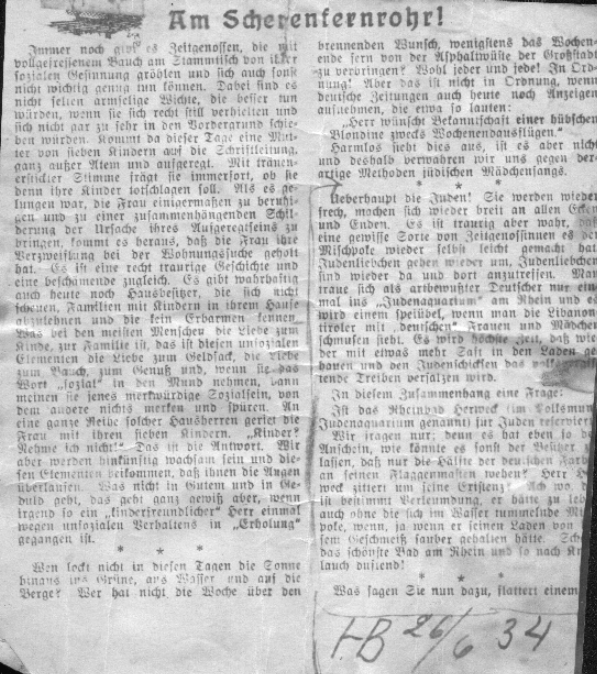 Am Scherenfernrohr!
Immer noch gibt es Zeitgenossen, die mit
vollgefressenem Bauch am Stammtisch von ihrer
sozialen Gesinnung gröhlen und sich auch sonst
nicht wichtig genug tun können. Dabei sind es
nicht selten armselige Wichte, die besser tun
würden, wenn sie sich recht still verhielten und
sich nicht gar zu sehr in den Vordergrund schie-
ben würden. Kommt da dieser Tage eine Mut-
ter von sieben Kindern auf die Schriftleitung,
ganz außer Atem und aufgeregt. Mit tränen-
erstickter Stimme frägt sie immerfort, ob sie
denn ihre Kinder totschlagen soll. Als es ge-
lungen war, die Frau einigermaßen zu beruhi-
gen und zu einer zusammenhängenden Schil-
derung der Ursache ihres Aufgeregtseins zu
bringen, kommt es heraus, daß die Frau ihre
Verzweiflung bei der Wohnungssuche geholt
hat. Es ist eine recht traurige Geschichte und
eine beschämende zugleich. Es gibt wahrhaftig
auch heute noch Hausbesitzer, die sich nicht
scheuen, Familien mit Kindern in ihrem Hause
abzulehnen und die kein Erbarmen kennen.
Was bei den meisten Menschen die Liebe zum
Kinde, zur Familie ist, das ist diesen unsozialen
Elementen die Liebe zum Geldsack, die Liebe
zum Bauch, zum Genuß und, wenn sie das
Wort „sozial" in den Mund nehmen, dann
meinen sie jenes merkwürdige Sozialsein, von
dem andere nichts merken und spüren. An
eine ganze Reihe solcher Hausherren geriet die
Frau mit ihren sieben Kindern. „Kinder?
Nehme ich nicht!" Das ist die Antwort. Wir
aber werden hinkünftig wachsam sein und die-
sen Elementen beikommen, daß ihnen die Augen
überlaufen. Was nicht in Gutem und in Ge-
duld geht, das geht ganz gewiß aber, wenn
irgend so ein „kinderfreundlicher" Herr einmal
wegen unsozialen Verhaltens in „Erholung"
gegangen ist.
* * *
Wen lockt nicht in diesen Tagen die Sonne
hinaus ins Grüne, ans Wasser und auf die
Berge? Wer hat nicht die Woche über den
brennenden Wunsch, wenigstens das Wochen-
ende fern von der Asphaltwüste der Großstadt
zu verbringen? Wohl jeder und jede! In Ord-
nung! Aber das ist nicht in Ordnung, wenn
deutsche Zeitungen auch heute noch Anzeigen
aufnehmen, die etwa so lauten:
„Herr wünscht Bekanntschaft einer hübschen
Blondine zwecks Wochenendausflügen."
Harmlos sieht dies aus, ist es aber nicht
und deshalb verwahren wir uns gegen der-
artige Methoden jüdischen Mädchenfangs.
* * *
Ueberhaupt die Juden! Sie werden wieder
frech, machen sich wieder breit an allen Ecken
und Enden. Es ist traurig aber wahr, daß
eine gewisse Sorte von Zeitgenossinnen es der
Mischpoke wieder selbst leicht gemacht hat.
Judenliebchen gehen wieder um, Judenliebchen
sind wieder da und dort anzutreffen. Man
traue sich als artbewußter Deutscher nur ein-
mal ins „Judenaquarium" am Rhein und es
wird einem speiübel, wenn man die Libanon-
tiroler mit „deutschen" Frauen und Mädchen
schmusen sieht. Es wird höchste Zeit, daß wie-
der mit etwas mehr Saft in den Laden ge-
hauen und den Judenschicksen das
tende Treiben versalzen wird.
In diesem Zusammenhang eine Frage:
Ist das Rheinbad Herweck (im Volksmund
Judenaquarium genannt) für Juden reserviert?
Wir fragen nur; denn es hat eben so den
Anschein, wie könnte es sonst der Besitzer zu-
lassen, daß nur die Hälfte der deutschen Farben
an seinen Flaggenmasten wehen? Herr Her-
weck zittert um seine Existenz? Ach wo, das
ist bestimmt Verleumdung, er hätte zu leben
auch ohne die sich im Wasser tummelnde Misch-
poke, wenn, ja wenn er seinen Laden von die-
sem Geschmeiß sauber gehalten hätte. Scha
das schönste Bad am Rhein und so nach Kn
lauch duftend!
* * *
Was sagen Sie nun dazu, flattert einem
HB 26/6 34